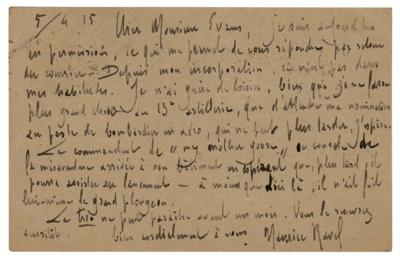 5/4 15 Cher Monsieur Evans, je suis aujourd'hui
en permission, ce qui me permet de vous répondre par retour
du courrier. Depuis mon incorporation, ce n'est pas dans
mes habitudes. Je n'ai guère de loisirs, bien que je ne fasse
plus grand chose au 13e artillerie, que d'attendre ma nomination
au poste de bombardier en aéro, qui ne peut plus tarder, j'espère.
Le commandant de "my mother goose" se console de
sa mésaventure arrivée à son bâtiment en espérant que, plus tard, il
pourra assister au lancement – à moins que d'ici là, il n'ait fait
lui-même le grand plongeon.
Le trio ne peut paraître avant un mois. Vous le recevrez
aussitôt. bien cordialement à vous Maurice Ravel